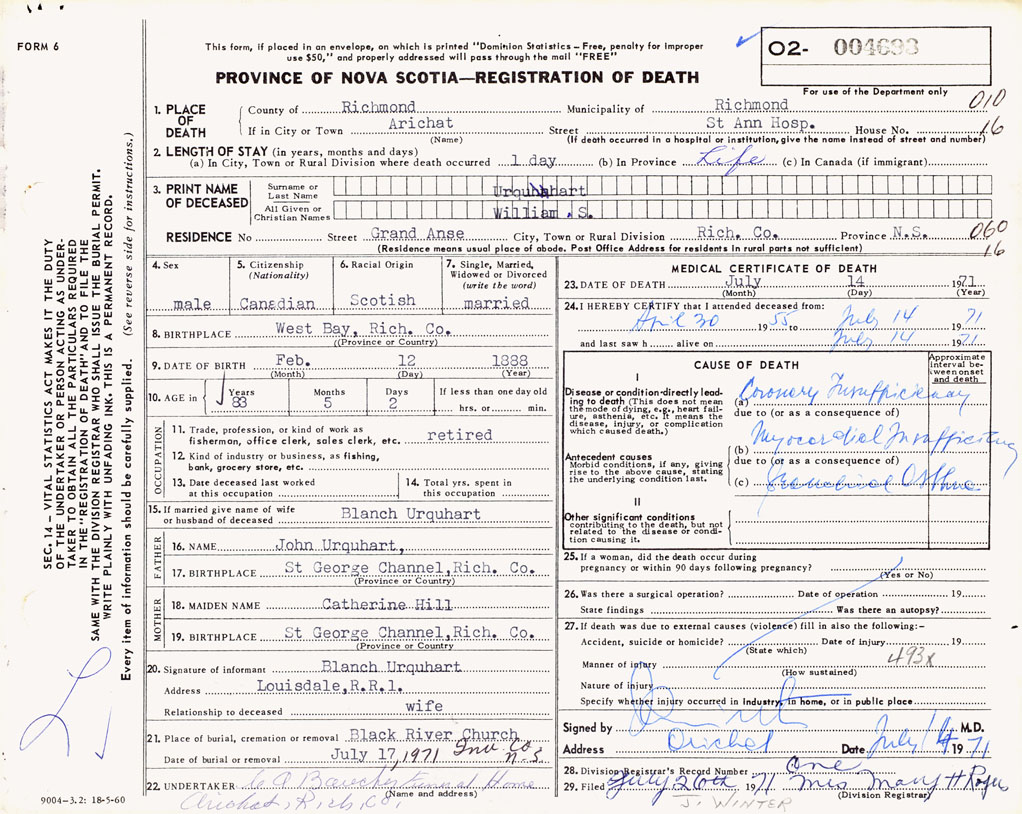 FORM 6
This form, if placed in an envelope, on which is printed "Dominion Statistics – Free, penalty for improper
use $50," and properly addressed will pass through the mail "FREE"
O2- 004683
For use of the Department only
PROVINCE OF NOVA SCOTIA—REGISTRATION OF DEATH
010
16
1. PLACE OF DEATH
County of Richmond Municipality of Richmond
If in City or Town Arichat Street St Ann Hosp. House No.
(Name) (If death occurred in a hospital or institution, give the name instead of street and number)
2. LENGTH OF STAY (in years, months and days)
(a) In City, Town or Rural Division where death occurred 1 day (b) In Province Life (c) In Canada (if immigrant)
3. PRINT NAME OF DECEASED
Surname or Last Name Urquhart
All Given or Christian Names William S.
RESIDENCE No Street Grand Anse City, Town or Rural Division Rich. Co. Province N.S.
060
16
(Residence means usual place of abode. Post Office Address for residents in rural parts not sufficient)
4. Sex male
5. Citizenship (Nationality) Canadian
6. Racial Origin Scotish
7. Single, Married, Widowed or Divorced (write the word) married
8. BIRTHPLACE West Bay, Rich. Co.
((Province or Country)
9. DATE OF BIRTH Feb. 12 1888
(Month) (Day) (Year)
10. AGE in Years 83 Months 5 Days 2 If less than one day old hrs. or min.
OCCUPATION
11. Trade, profession, or kind of work as fisherman, office clerk, sales clerk, etc. retired
12. Kind of industry or business, as fishing, bank, grocery store, etc.
13. Date deceased last worked at this occupation
14. Total yrs. spent in this occupation
15. If married give name of wife or husband of deceased Blanch Urquhart
FATHER
16. NAME John Urquhart,
17. BIRTHPLACE St George Channel, Rich. Co.
(Province or Country)
MOTHER
18. MAIDEN NAME Catherine Hill
19. BIRTHPLACE St George Channel, Rich. Co.
(Province or Country
20. Signature of informant Blanch Urquhart
Address Louisdale, R.R.1.
Relationship to deceased wife
21. Place of burial, cremation or removal Black River Church Inv. Co N-S
Date of burial or removal July 17, 1971
22. UNDERTAKER Funeral Home
(Name and address)
Arichat, Rich. Co,
MEDICAL CERTIFICATE OF DEATH
23. DATE OF DEATH July 14 1971
(Month) (Day) (Year)
24. I HEREBY CERTIFY that I attended deceased from:
April 30 1955 to July 14 1971
and last saw h alive on July 14 1971
CAUSE OF DEATH
Approximate interval between onset and death
I
Disease or condition directly leading to death (This does not mean the mode of dying, e.g., heart failure, asthenia, etc. It means the disease, injury, or complication which caused death.)
(a) Coronary Insufficiency
due to (or as a consequence of)
Antecedent causes
Morbid conditions, if any, giving rise to the above cause, stating the underlying condition last.
(b) Myocardial Insufficiency
due to (or as a consequence of)
(c) Bronchial Asthma
II
Other significant conditions
contributing to the death, but not related to the disease or condition causing it.
25. If a woman, did the death occur during
pregnancy or within 90 days following pregnancy?
(Yes or No)
26. Was there a surgical operation? Date of operation 19
State findings Was there an autopsy?
27. If death was due to external causes (violence) fill in also the following:–
Accident, suicide or homicide? Date of injury 19
(State which)
493x
Manner of injury
(How sustained)
Nature of injury
Specify whether injury occurred in Industry, in home, or in public place
Signed by M.D.
Address Arichat Date July 14 1971
28. Division Registrar's Record Number One
29. Filed July 20th 1971 Mrs Mary H
(Division Registrar)
J. WINTER
SEC. 14 – VITAL STATISTICS ACT MAKES IT THE DUTY
OF THE UNDERTAKER OR PERSON ACTING AS UNDER-
TAKER TO OBTAIN ALL THE PARTICULARS REQUIRED
IN THE "REGISTRATION OF DEATH" AND TO FILE THE
SAME WITH THE DIVISION REGISTRAR WHO SHALL ISSUE THE BURIAL PERMIT.
WRITE PLAINLY WITH UNFADING INK. THIS IS A PERMANENT RECORD.
Every item of information should be carefully supplied. (See reverse side for instructions.)
9004-3.2: 18-5-60